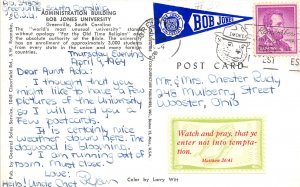 THE ADMINISTRATION BUILDING
BOB JONES UNIVERSITY
Greenville, South Carolina
The "world's most unusual university" stands
without apology for "the Old Time Religion" and
the absolute authority of the Bible. The University
has an enrollment of approximately 3,000 students
from every state in the union and many foreign
countries.
April 9, 1964
Dear Aunt Rota:
I thought that you
might like to have a few
pictures of the University
so I will send you a
few postcards.
It is certainly nice
weather down here. The
dogwood is blooming.
I am running out of
room. Must close.
Love
Hello! Uncle Chet
BOB JONES
POST CARD
Mr. & Mrs. Chester Rudy
348 Mulberry Street
Wooster, Ohio
Watch and pray, that ye
enter not into tempta-
tion.
Matthew 26:41
Color by Larry Witt